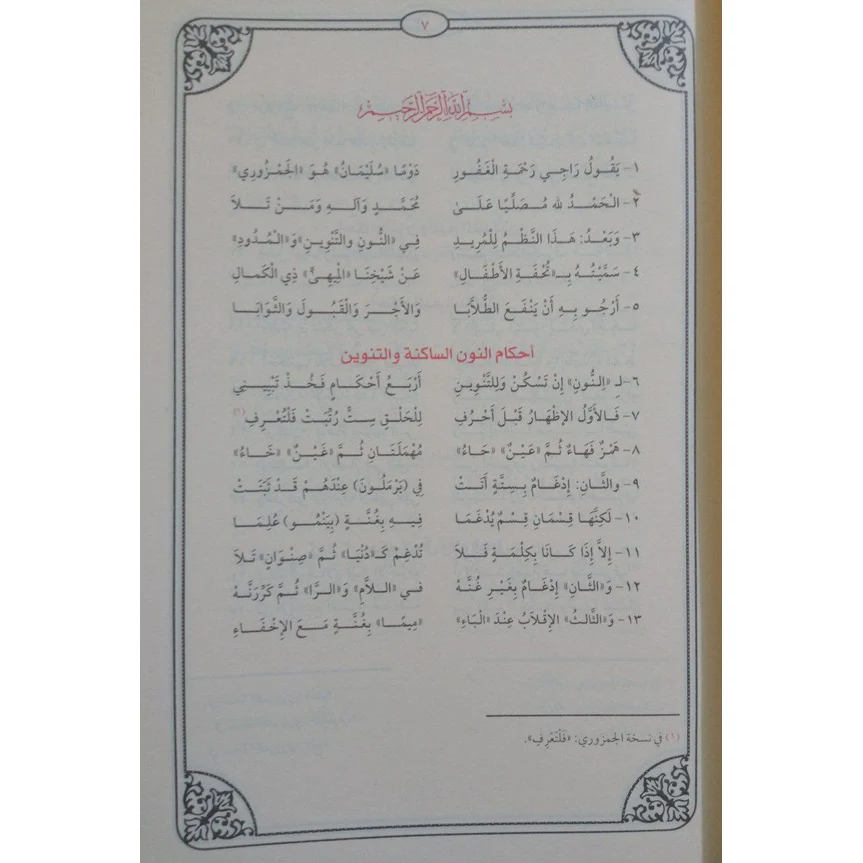 ٧
بسم الله الرحمن الرحيم
١- يَقُولُ رَاجِي رَحْمَةِ الْغَفُورِ دَوْمًا «سُلَيْمَانُ» هُوَ «الجَمْزُورِي»
٢- الْحَمْدُ لله مُصَلِّيًا عَلَىٰ مُحَمَّدٍ وَآلِهِ وَمَنْ تَلَا
٣- وَبَعْدُ: هَذَا النَّظْمُ لِلْمُرِيدِ فِي «النُّونِ والتَّنْوِينِ» وَ«الْمُدُودِ»
٤- سَمَّيْتُهُ بِـ«تُحْفَةِ الأَطْفَالِ» عَنْ شَيْخِنَا «المِيهِيِّ» ذِي الْكَمَالِ
٥- أَرْجُو بِهِ أَنْ يَنْفَعَ الطُّلَّابَا وَالأَجْرَ وَالْقَبُولَ وَالثَّوَابَا
أحكام النون الساكنة والتنوين
٦- لِـ «النُّونِ» إِنْ تَسْكُنْ وَلِلتَّنْوِينِ أَرْبَعُ أَحْكَامٍ فَخُذْ تَبْيِينِي
٧- فَالأَوَّلُ الإِظْهَارُ قَبْلَ أَحْرُفِ لِلْحَلْقِ سِتٌّ رُتِّبَتْ فَلْتُعْرِفِ(١)
٨- هَمْزٌ فَهَاءٌ ثُمَّ «عَيْنٌ» «حَاءُ» مُهْمَلَتَانِ ثُمَّ «غَيْنٌ» «خَاءُ»
٩- والثَّانِ: إِدْغَامٌ بِسِتَّةٍ أَتَتْ فِي (يَرْمَلُونَ) عِنْدَهُمْ قَدْ ثَبَتَتْ
١٠- لَكِنَّهَا قِسْمَانِ قِسْمٌ يُدْغَمَا فِيهِ بِغُنَّةٍ (بِيَنْمُو) عُلِمَا
١١- إِلاَّ إِذَا كَانَا بِكِلْمَةٍ فَلَا تُدْغِمْ كَـ«دُنْيَا» ثُمَّ «صِنْوَانٍ» تَلَا
١٢- وَ«الثَّانِ» إِدْغَامٌ بِغَيْرِ غُنَّهْ في «اللاَّمِ» وَ«الرَّا» ثُمَّ كَرِّرَنَّهْ
١٣- وَ«الثَّالثُ» الإِقْلَابُ عِنْدَ «الْبَاءِ» «مِيمًا» بِغُنَّةٍ مَعَ الإِخْفَاءِ
(١) في نسخة الجمزوري: «فَلْتَعْرِفِ».